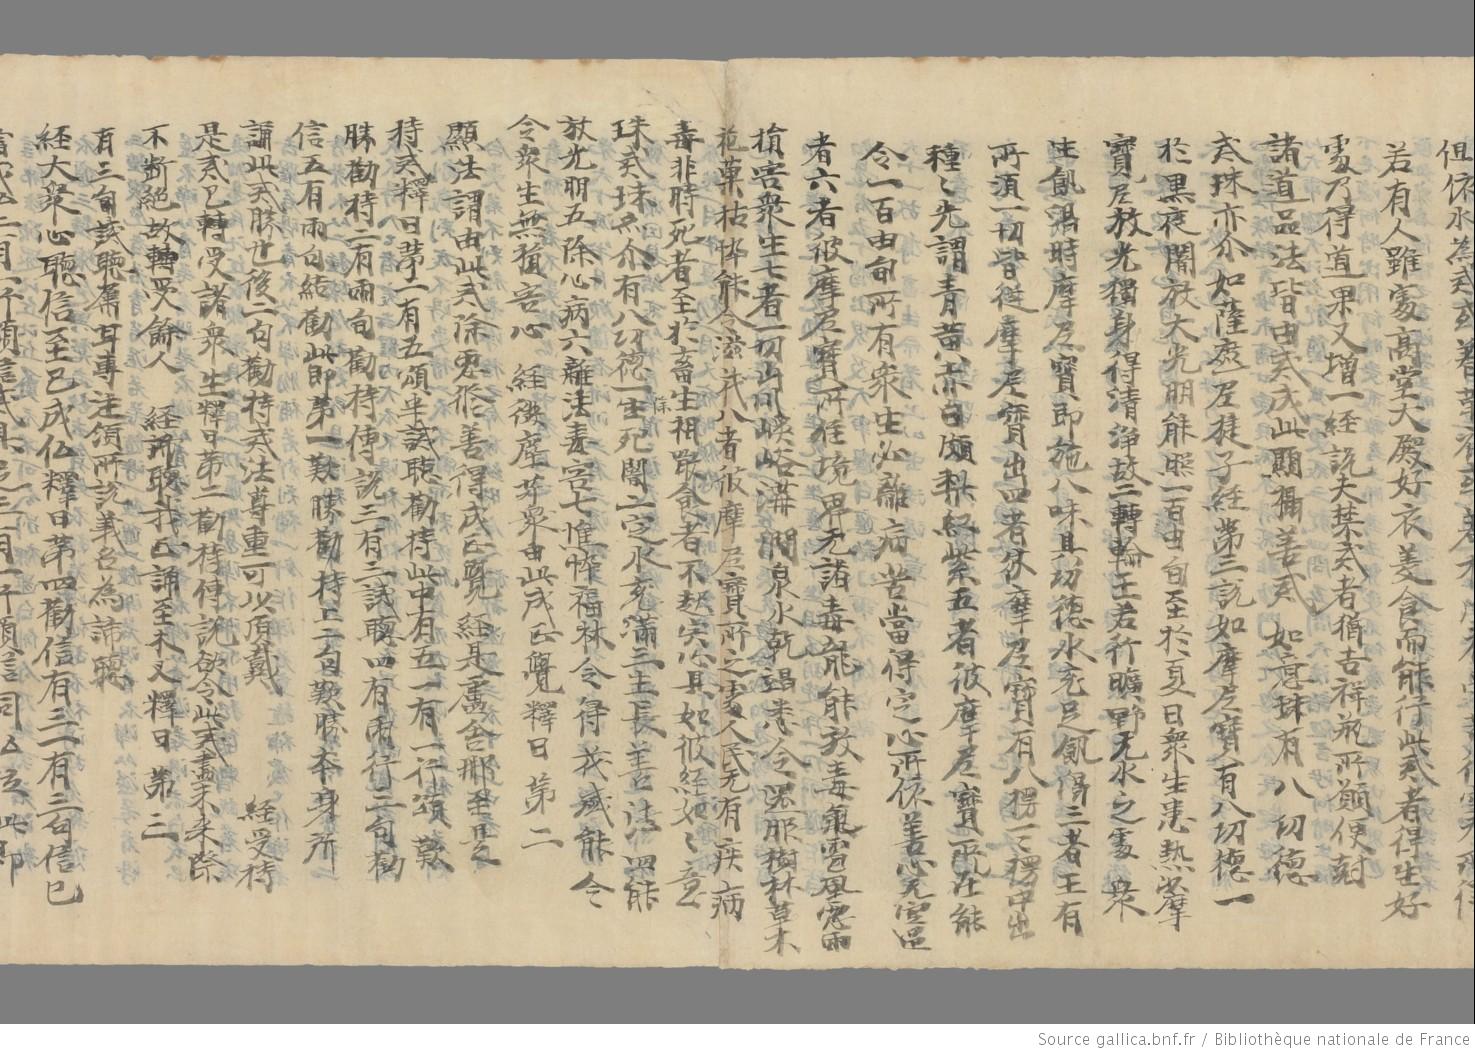 若有人雖處高堂大殿好衣美食而能行此戒者得生好
處乃得道果又增一經說夫禁戒者猶吉祥瓶所願便尅
諸道品法皆由戒成此顯攝善戒 如意珠有八切德
戒珠亦尒如薩遮尼揵子經第三說如摩尼寶有八切德一
於黑夜闇放大光明能照一百由旬至於夏日衆生患熱如摩
寶尼放光獨身得清淨故二轉輪王若行曠野无水之處 衆
生飢渴時摩尼寶即施八味具切德水充足飢得三者王有
所湏一切皆從摩尼寶出四者然摩尼寶有八楞一一楞中出
種〻光謂青黃赤白頗梨紅紫五者彼摩尼寶所在能
令一百由旬所有衆生必離病苦當得定心所依善心无空過
者六者彼摩尼寶所住境界无諸毒龍能放毒氣雹風惡雨
損害衆生七者一切山川峽峪溝澗泉水乾竭悉令盈服樹林草木
苑菓枯悴能令滋茂八者彼摩尼寶所之處人民无有疾病
毒非時死者至於畜生相噉食者不起害心具如彼經如〻意
珠戒珠亦尒有八切德一除生死闇二定水充滿三生長善法四能
放光明五除心病六離法毒害七惟悴福林令得茂盛能令
令衆生無損害心 經微塵菩衆由此成正覺釋曰第二
顯法謂由此戒除惡修善得成正覺經是盧舍那至具之
持戒釋曰第二有五頌半誡聽勸持此中有五一有一行頌歎
勝勸持二有兩句勸持傳說三有二誡聽四有兩行三句勸
信五有兩句結勸此即第一歎勝勸持上二句歎勝本身所
誦此戒勝也後二句勸持戒法尊重可以頂戴 經受持
是戒已轉受諸衆生釋曰第二勸持傳說欲令此戒盡未來際
不斷絕故轉受餘人 經諦聽我正誦至木又釋曰第三
有三句誡聽屬耳專注領所說義名為諦聽
經大衆心聽信至已成仏釋曰第四勸信有三一有三句信已